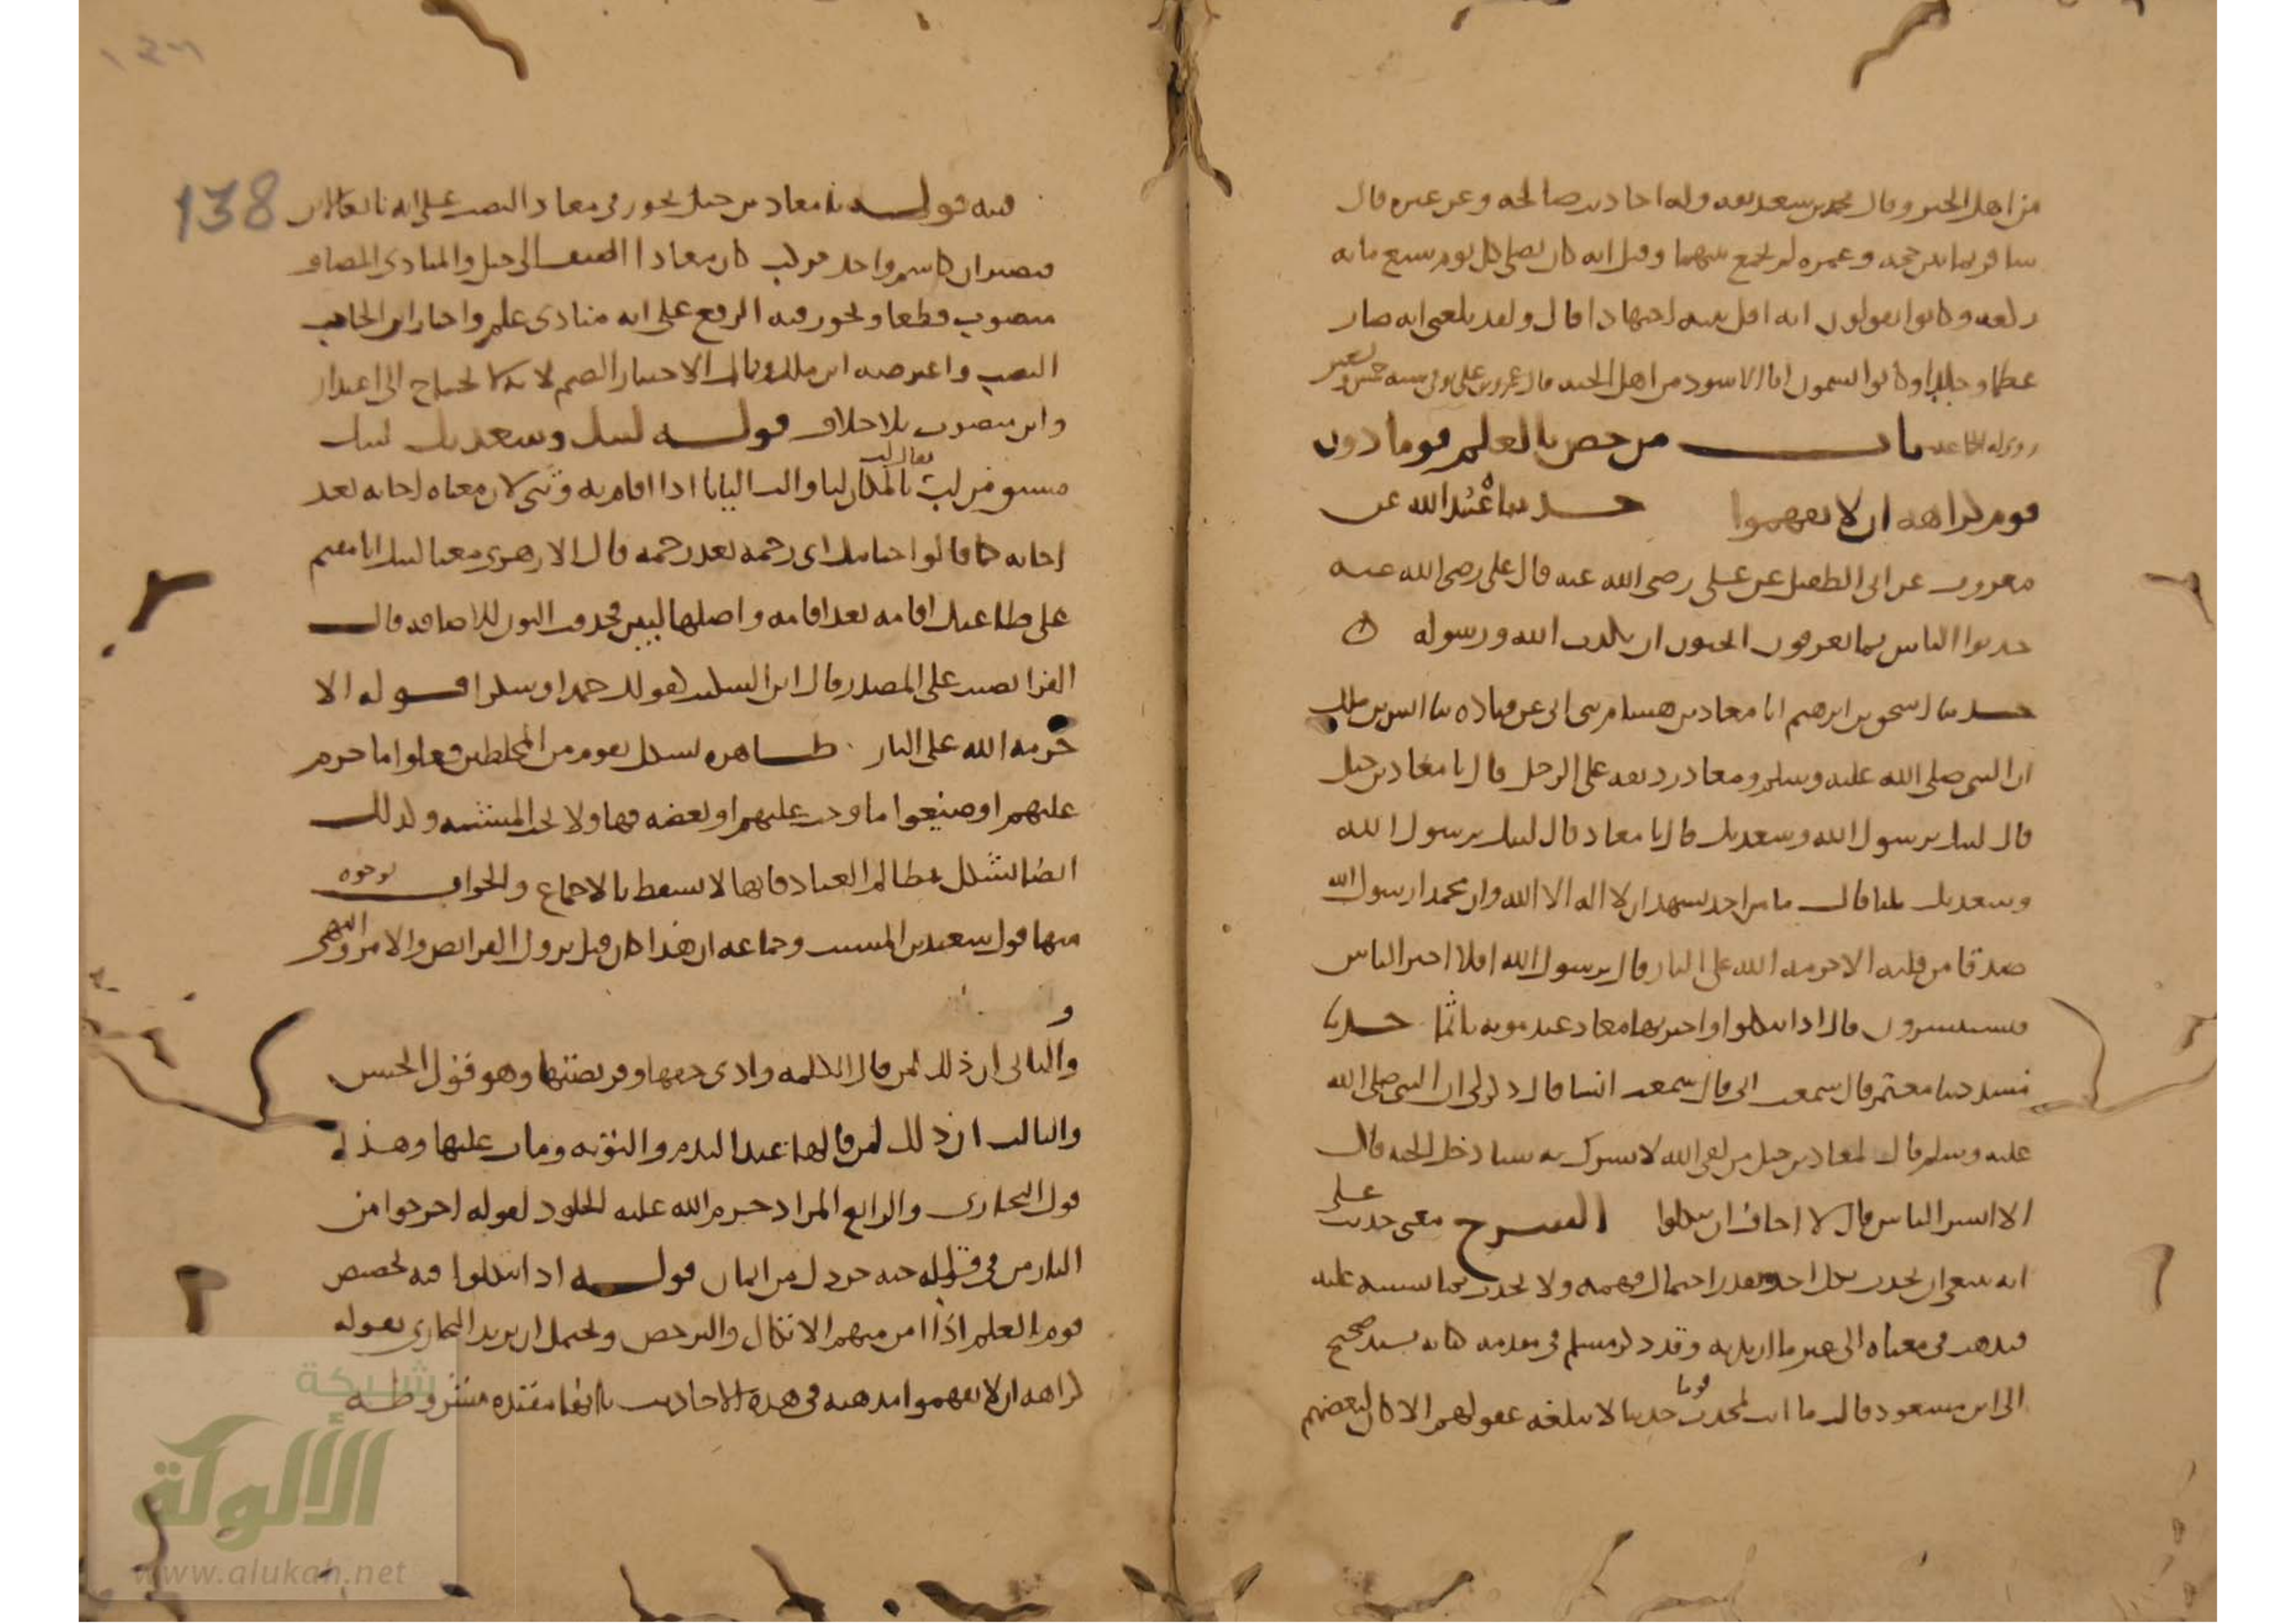 من اهل الخير وقال محمد بن سعد ثقه وله احاديث صالحه وعن غيره قال
سافر ثمانين حجه وعمره لم يجمع بينهما وقيل انه كان يصلي كل يوم سبع مايه
ركعه وكانوا يقولون انه اقل بيته اجتهادا قال ولقد بلغني انه صار
عظما وجلدا وكانوا يسمون ال الاسود من اهل الجنه قال عمرو بن علي توفي سنه خمس وسبعين
روى له الجماعه باب من خص بالعلم قوما دون
قوم كراهه ان لا يفهموا حدثنا عبيد الله عن
معروف عن ابي الطفيل عن علي رضي الله عنه قال علي رضي الله عنه
حدثوا الناس بما يعرفون اتحبون ان يكذب الله ورسوله
حدثنا اسحق بن ابرهيم انا معاذ بن هشام حدثني ابي عن قتاده ثنا انس بن ملك
ان النبي صلى الله عليه وسلم ومعاذ رديفه على الرحل قال يا معاذ بن جبل
قال لبيك يرسول الله وسعديك قال يا معاذ قال لبيك يرسول الله
وسعديك ثلثا قال ما من احد يشهد ان لا اله الا الله وان محمدا رسول الله
صدقا من قلبه الا حرمه الله على النار قال يرسول الله افلا اخبر الناس
فيستبشرون قال اذا يتكلوا واخبر بها معاذ عند موته تاثما حدثنا
مسدد ثنا معتمر قال سمعت ابي قال سمعت انسا قال ذكر لي ان النبي صلى الله
عليه وسلم قال لمعاذ بن جبل من لقي الله لا يشرك به شيا دخل الجنه قال
الا ابشر الناس قال لا اخاف ان يتكلوا الشرح معنى حديث علي
انه ينبغي ان يحدث كل احد بقدر احتمال فهمه ولا يحدث بما يشتبه عليه
فيذهب في معناه الى غير ما اريد به وقد ذكر مسلم في مقدمه كتابه بسند صحيح
الى ابن مسعود قال ما انت بمحدث قوما حديثا لا تبلغه عقولهم الا كان لبعضهم
138
فتنه قوله يا معاذ بن جبل يجوز في معاذ النصب على انه تابع لابن
فيصيران كاسم واحد مركب كان معاذا اضيف الى جبل والمنادى المضاف
منصوب قطعا ويجوز فيه الرفع على انه منادى علم واختار ابن الحاجب
النصب واعترضه ابن ملك وقال الاختيار الضم لانه لا يحتاج الى اعتذار
وابن منصوب بلا خلاف قوله لبيك وسعديك لبيك
مشتق من لب يقال لب بالمكان لبا والب البابا اذا اقام به وثني لان معناه اجابه بعد
اجابه كما قالوا حنانيك اي رحمه بعد رحمه قال الازهري معنا لبيك انا مقيم
على طاعتك اقامه بعد اقامه واصلها لبيين فحذفت النون للاضافه قال
الفرا نصب على المصدر وقال ابن السكيت كقولك حمدا وشكرا قوله الا
حرمه الله على النار ظاهره يشكل بقوم من المخلطين فعلوا ما حرم
عليهم او ضيعوا ما وجب عليهم او بعضه فهاولا تحت المشيئه وكذلك
ايضا يشكل بمظالم العباد فانها لا تسقط بالاجماع والجواب بوجوه
منها قول سعيد بن المسيب وجماعه ان هذا كان قبل نزول الفرائض والامر والنهي
و
والثاني ان ذلك لمن قال الكلمه وادى حقها وفريضتها وهو قول الحسن
والثالث ان ذلك لمن قالها عند الندم والتوبه ومات عليها وهذا
قول البخاري والرابع المراد حرم الله عليه الخلود لقوله اخرجوا من
النار من في قلبه حبه خردل من ايمان قوله اذا يتكلوا فيه تخصيص
قوم بالعلم اذا امن منهم الاتكال والترخص ويحتمل ان يريد البخاري بقوله
كراهه ان لا يفهموا مذهبه في هذه الاحاديث بانها مقيده مشروطه
شبكة
الألوكة
www.alukah.net